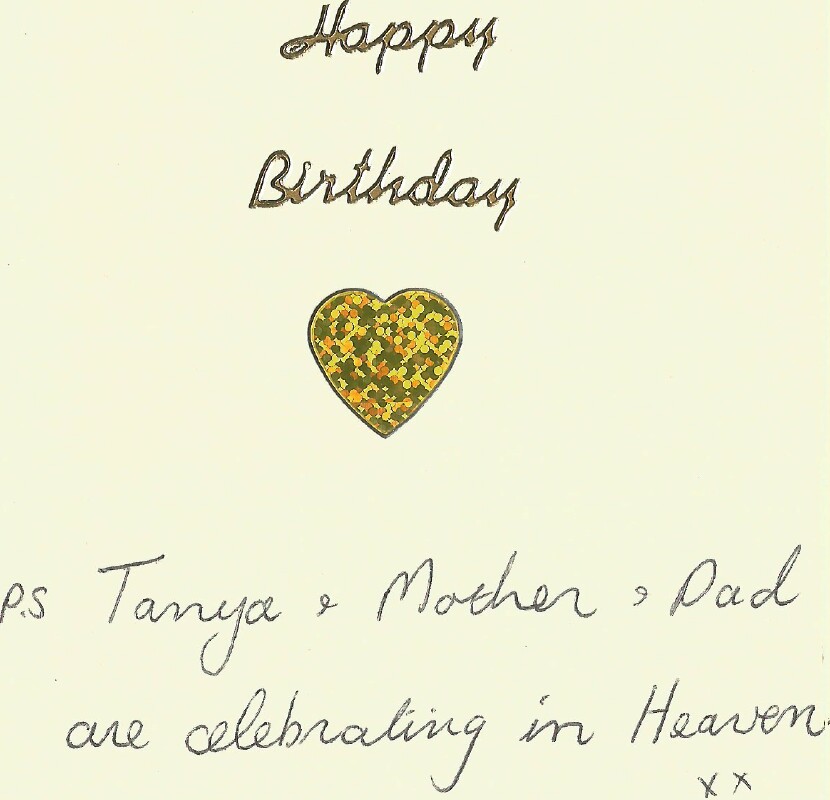 Happy
Birthday
P.S Tanya & Mother & Dad
are celebrating in Heaven.
x x